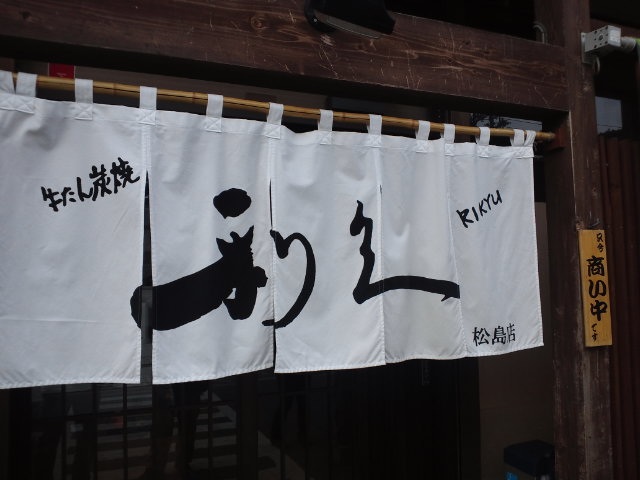 牛たん炭焼
利久
RIKYU
松島店
只今
商い中
です